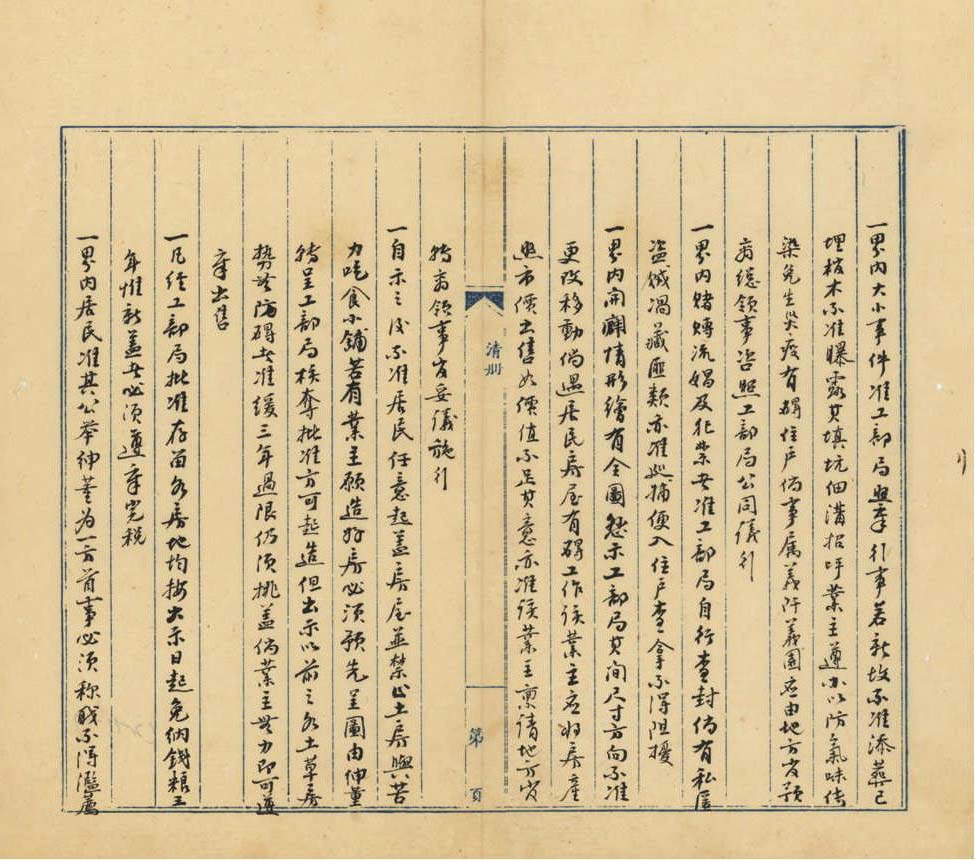 一界内大小事件准工部局照章引事若新坟不准添葬已
埋棺木不准曝露其填坑细溝招呼業主遵办以防氣味传
染免生災疫有碍住戶倘事属義阡義園应由地方官预
商总领事咨照工部局公同儀引
一界内赌塼流娼及犯禁者准工部局自行查封倘有私匿
盗贼窝藏匪类亦准巡捕便入住戶查拿不得阻擾
一界内開闢情形繪有全圖懸示工部局其间尺寸方向不准
更改移動倘遇居民房屋有碍工作该業主应將房産
照市價出售如價值不足其意亦准该業主禀請地方官
转商领事官妥儀施引
清册
第 頁
一自示之後不准居民任意起盖房屋並禁止土房與苦
力吃食小鋪若有業主願造好房必须预先呈圖由绅董
转呈工部局核奪批准方可起造但出示以前之各土草房
势無防碍者准缓三年過限仍须挑盖倘業主無力即可遵
章出售
一凡经工部局批准存留各房地均按出示日起免纳钱粮三
年惟新盖者必须遵章完税
一界内居民准其公举绅董为一方首事必须称职不得濫處